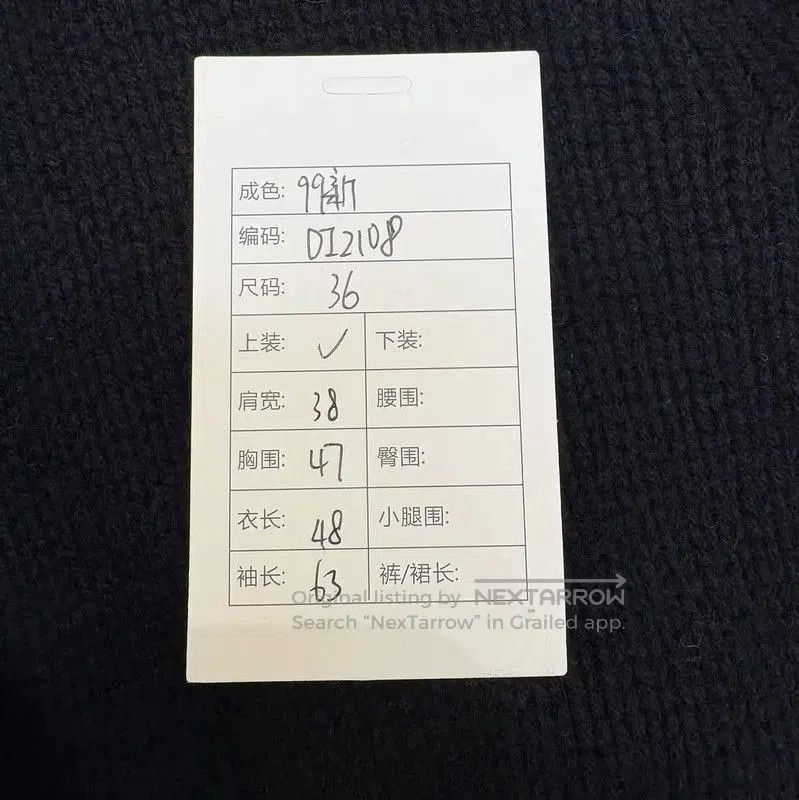 成色: 99新
编码: DI2108
尺码: 36
上装: ✓ 下装:
肩宽: 38 腰围:
胸围: 47 臀围:
衣长: 48 小腿围:
袖长: 63 裤/裙长:
Original listing by NEXTARROW
Search “NexTarrow” in Grailed app.